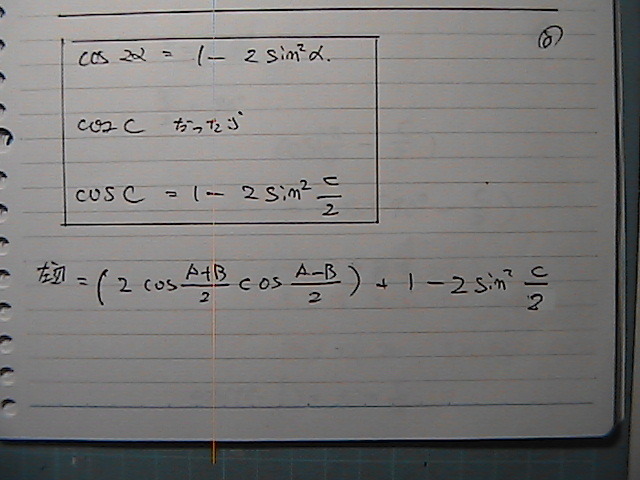 ⑥
cos 2α = 1 - 2 sin²α.
cos C だったら
cos C = 1 - 2 sin² C/2
左辺 = (2 cos (A+B)/2 cos (A-B)/2) + 1 - 2 sin² C/2